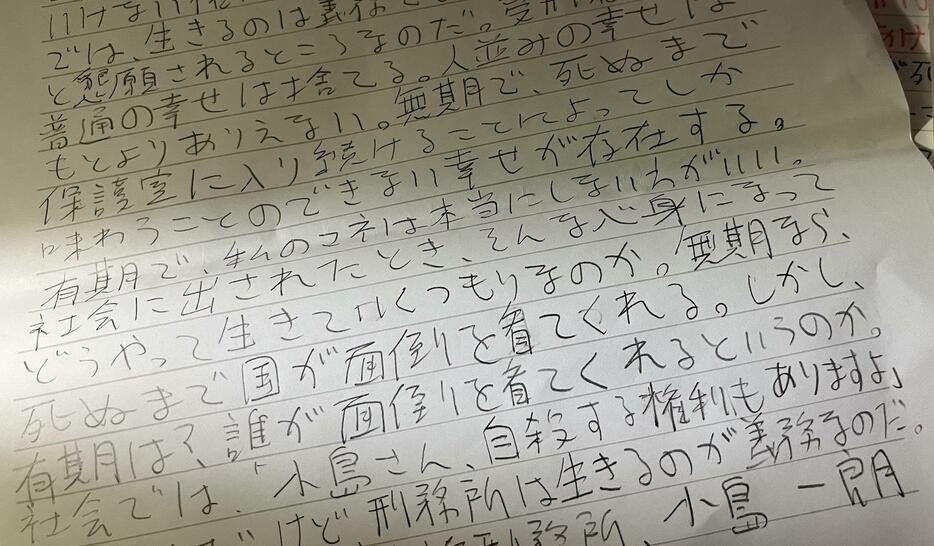 いけない
では、生きるのは義務
と懇願されるところなのだ。
普通の幸せは捨てる。人並みの幸せは
もとよりありえない。無期で、死ぬまで
保護室に入り続けることによってしか
味わうことのできない幸せが存在する。
有期で、私のマネは本当にしないわがいい。
社会に出されたとき、そんな心身になって
どうやって生きていくつもりなのか。無期なら、
死ぬまで国が面倒を着てくれる。しかし、
有期は?、誰が面倒を着てくれるというのか。
社会では「小島さん、自殺する権利もありますよ」
だけど刑務所は生きるのが義務なのだ。
刑務所、小島一朗